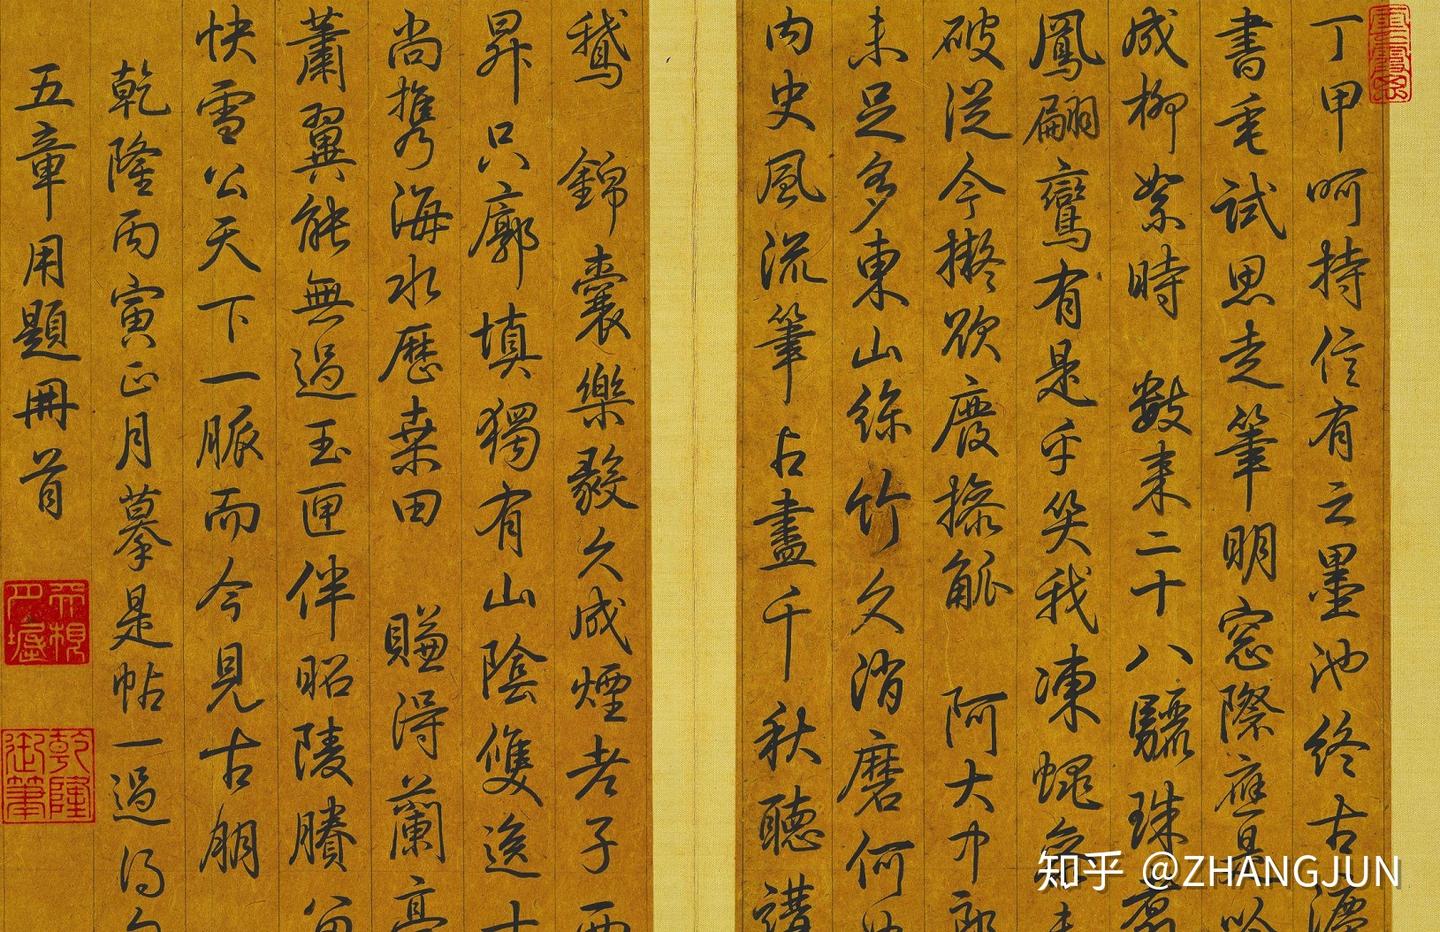 丁甲呵持信有之墨池終古
書毫試思走筆明窓際應是
成柳絮時 數來二十八驪珠
鳳翩鸞有是乎笑我凍蠅
破從今擬欲廢操觚 阿大中郎
未足多東山絲竹久消磨何
內史風流筆占盡千秋聽講
鵝 錦囊樂毅久成煙老子西
昇只廓填獨有山陰雙逸
尚攜海水歷桑田 賺得蘭亭
蕭翼能無過玉匣伴昭陵賸
快雪公天下一脈而今見古朋
乾隆丙寅正月摹是帖一過得
五章用題冊首
乾隆御筆
知乎 @ZHANGJUN